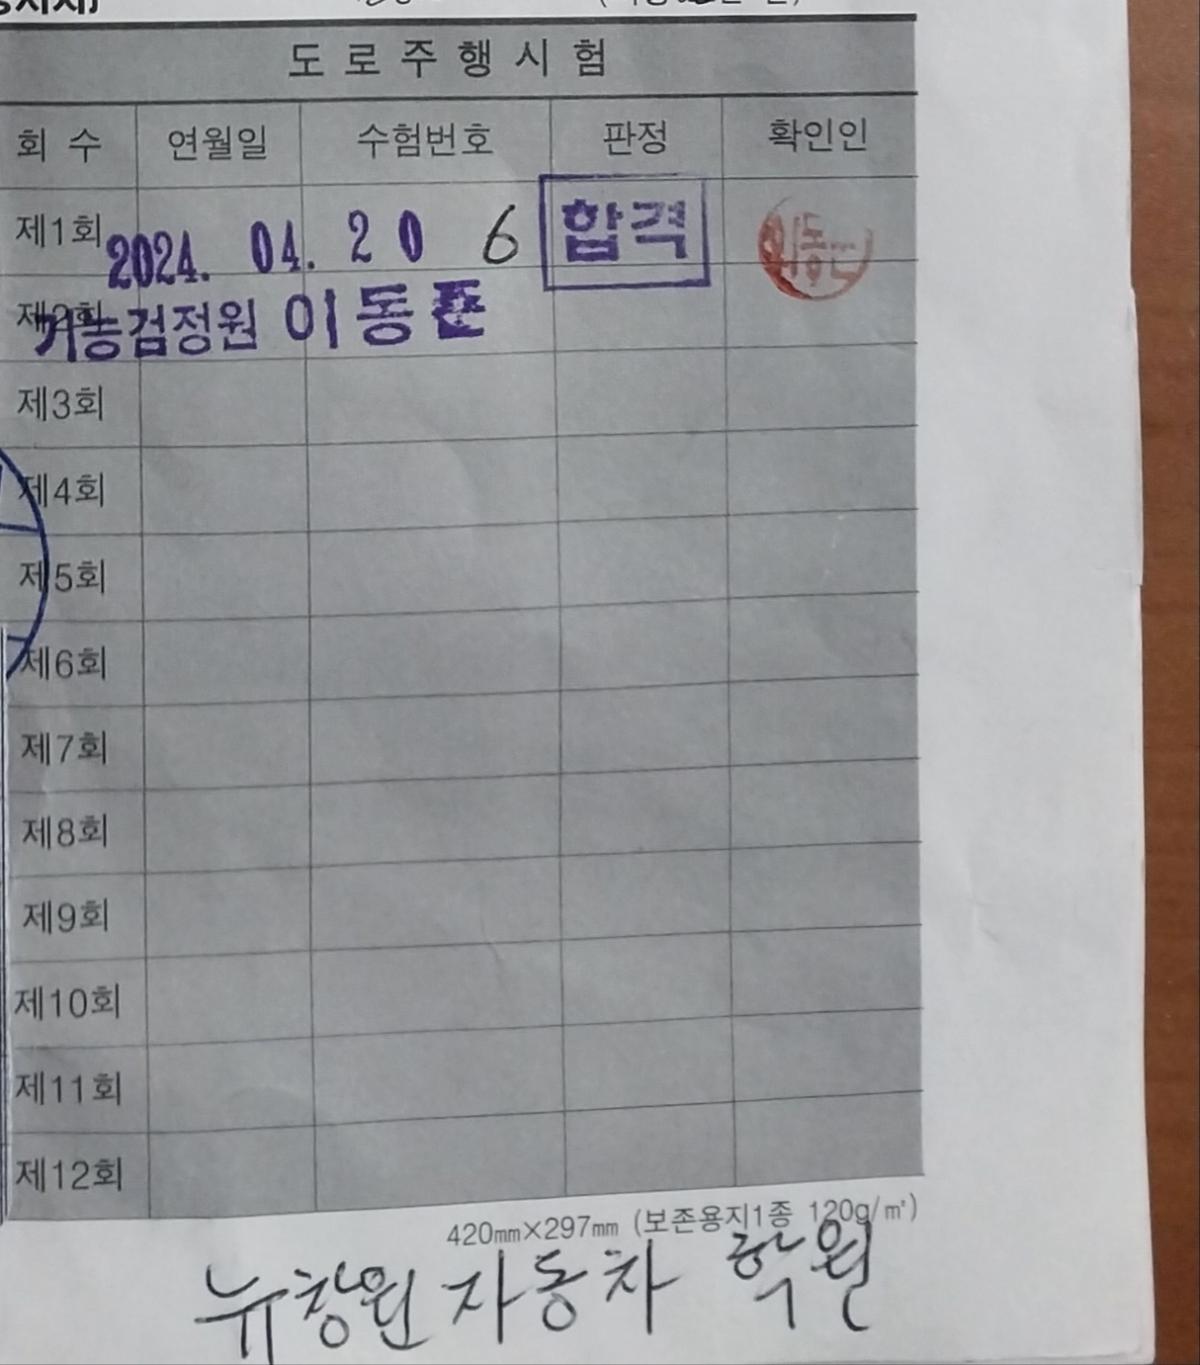 도로주행시험
회 수 연월일 수험번호 판정 확인인
제1회 2024. 04. 20 6 합격
제2회 기능검정원 이동준
제3회
제4회
제5회
제6회
제7회
제8회
제9회
제10회
제11회
제12회
420㎜×297㎜ (보존용지1종 120g/㎡)
뉴창원 자동차 학원